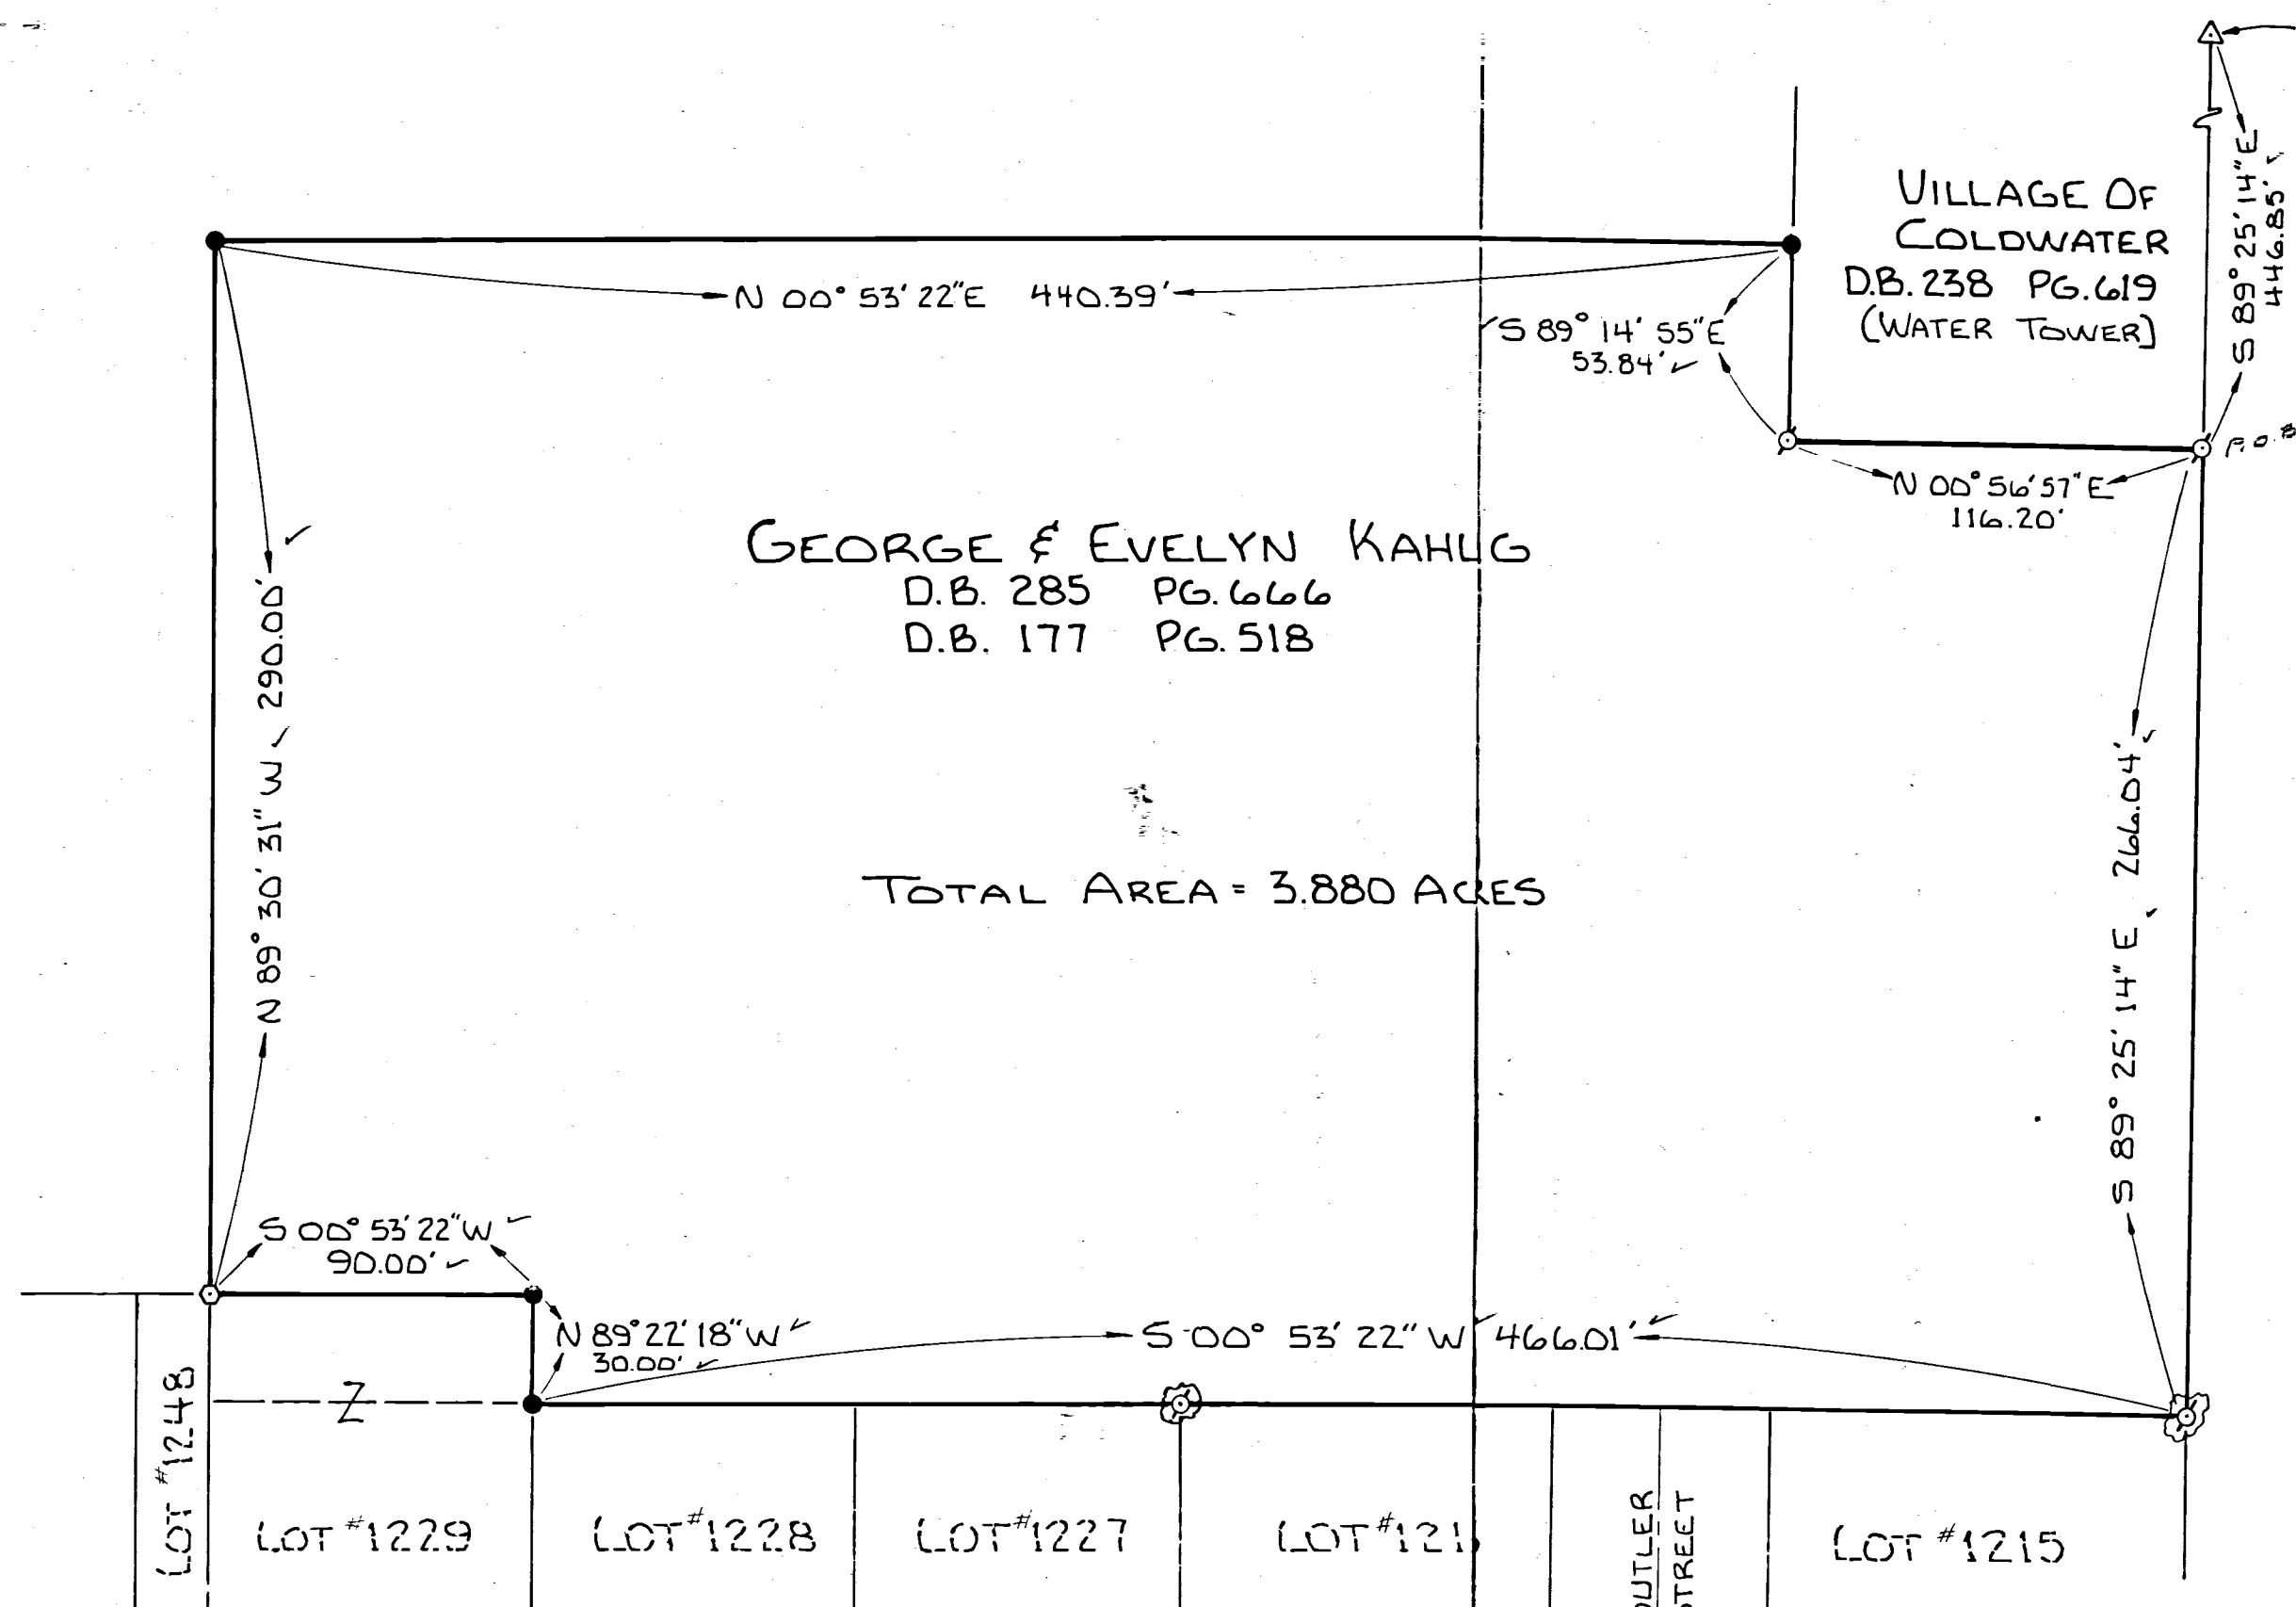 VILLAGE OF
COLDWATER
D.B. 238 PG. 619
(WATER TOWER)
S 89° 25' 14" E
446.85'
N 00° 53' 22" E 440.39'
S 89° 14' 55" E
53.84'
P.O.B
N 00° 56' 57" E
116.20'
GEORGE & EVELYN KAHLIG
D.B. 285 PG. 666
D.B. 177 PG. 518
N 89° 30' 31" W 290.00'
TOTAL AREA = 3.880 ACRES
S 89° 25' 14" E 266.04'
S 00° 53' 22" W
90.00'
N 89° 22' 18" W
30.00'
S 00° 53' 22" W 466.01'
Z
LOT #1248
LOT #1229
LOT #1228
LOT #1227
LOT #121
BUTLER
STREET
LOT #1215